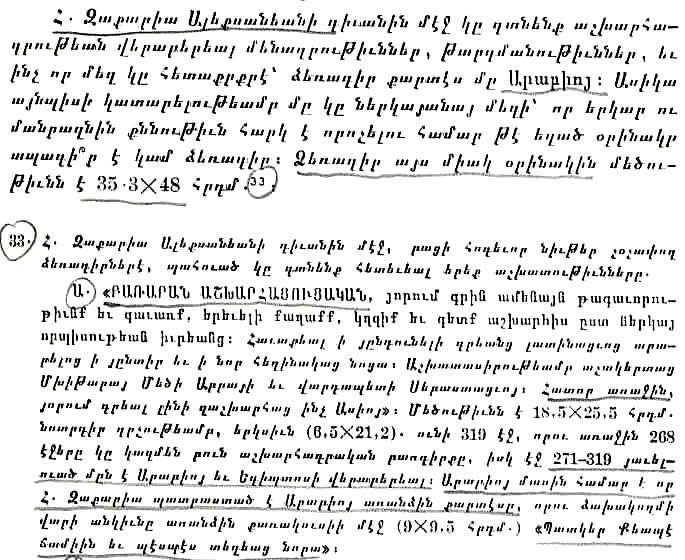 Հ. Զաքարիա Ալեքսանեանի դիւանին մէջ կը գտնենք աշխարհա-
գրութեան վերաբերեալ մենագրութիւններ, թարգմանութիւններ, եւ
ինչ որ մեզ կը հետաքրքրէ՝ ձեռագիր քարտէս մը Արաբիոյ։ Ասիկա
այնպիսի կատարելութեամբ մը կը ներկայանայ մեզի՝ որ երկար ու
մանրազնին քննութիւն հարկ է որոշելու համար թէ եղած օրինակը
տպագի՞ր է կամ ձեռագիր։ Ձեռագիր այս միակ օրինակին մեծու-
թիւնն է 35·3×48 հրդմ.33։
33. Հ. Զաքարիա Ալեքսանեանի դիւանին մէջ, բացի հոգեւոր նիւթեր շօշափող
ձեռագիրներէ, պահուած կը գտնենք հետեւեալ երեք աշխատութիւնները.
Ա. «ԲԱՌԱՐԱՆ ԱՇԽԱՐՀԱՑՈՒՑԱԿԱՆ, յորում գրին ամենայն թագաւորու-
թիւնք եւ գաւառք, երեւելի քաղաքք, կղզիք եւ գետք աշխարհիս ըստ ներկայ
որպիսութեան իւրեանց։ Հաւաքեալ ի յընդունելի գրեանց լատինացւոց արա-
րելոց ի յընտիր եւ ի նոր հեղինակաց նոցա։ Աշխատասիրութեամբ աշակերտաց
Մխիթարայ Մեծի Աբբայի եւ վարդապետի Սեբաստացւոյ։ Հատոր առաջին,
յորում գրեալ լինի զաշխարհաց ինչ Ասիոյ»։ Մեծութիւնն է 18,5×25,5 հրդմ.
նոտրգիր գրչութեամբ, երկսիւն (6,5×21,2). ունի 319 էջ, որու առաջին 268
էջերը կը կազմեն բուն աշխարհագրական բառգիրքը, իսկ էջ 271–319 յաւել-
ուած մըն է Արաբիոյ եւ Եգիպտոսի վերաբերեալ։ Արաբիոյ մասին համար է որ
Հ. Զաքարիա պատրաստած է Արաբիոյ առանձին քարտէսը, որու ձախակողմի
վարի անկիւնը առանձին քառակուսիի մէջ (9×9,5 հրդմ.) «Պատկեր Քեապէ
ճամիին եւ պէսպէս տեղեաց նորա»։